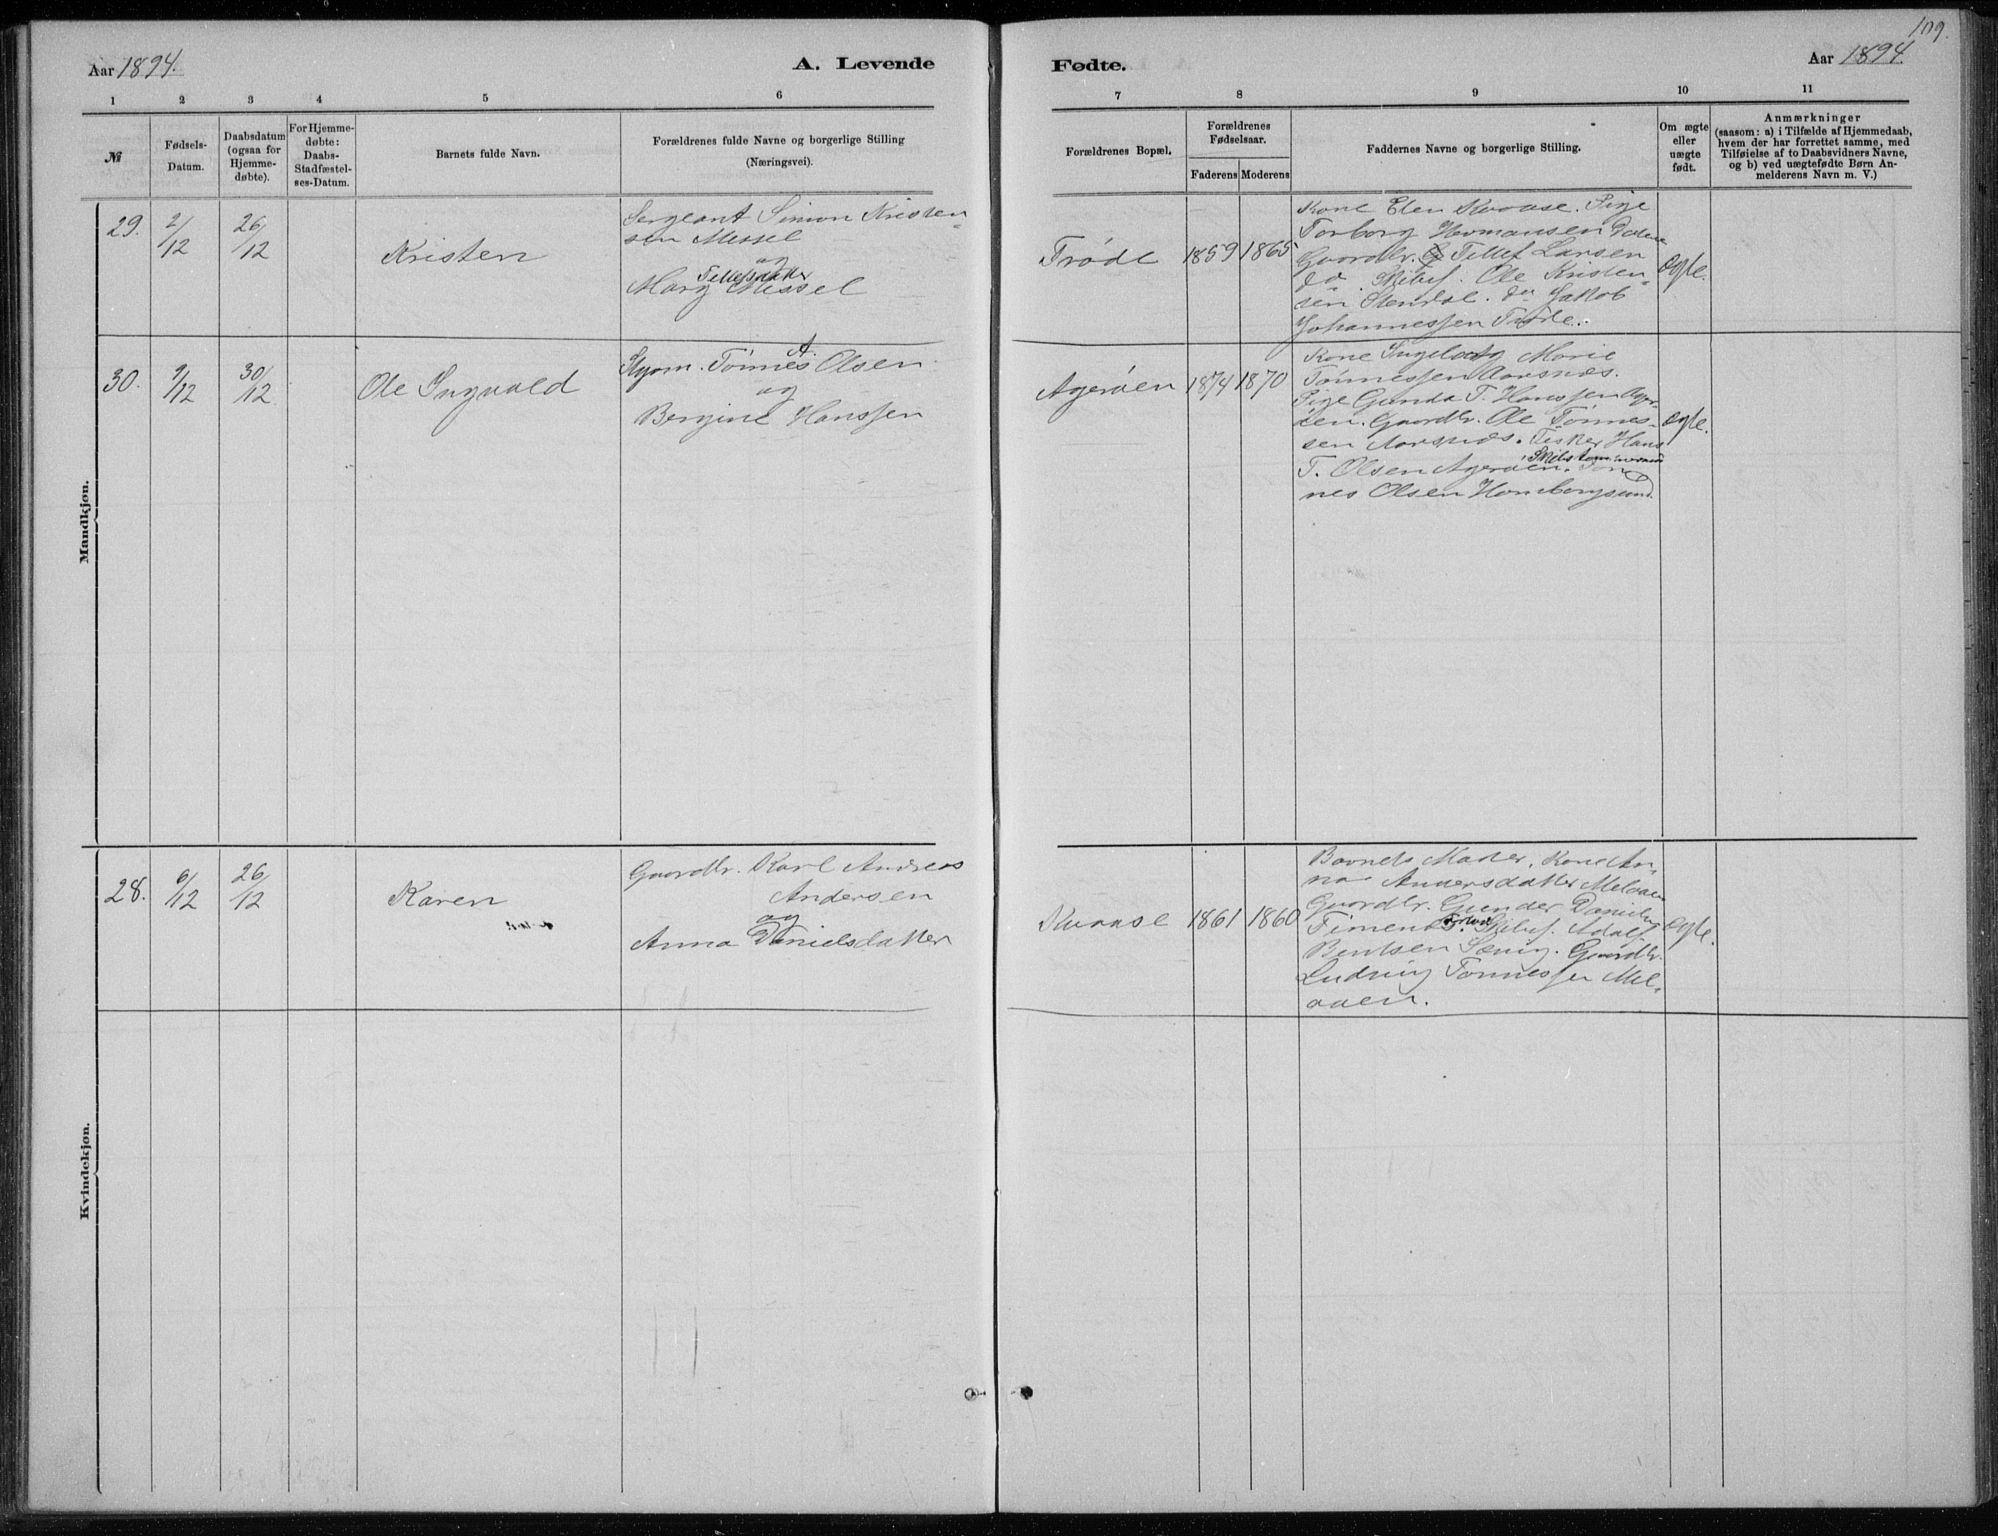 109.
Aar 1894.
A. Levende
Fødte.
Aar 1894.
1
2
3
4
5
6
7
8
9
10
11
№
Fødsels-
Datum.
Daabsdatum
(ogsaa for
Hjemme-
døbte).
For Hjemme-
døbte:
Daabs-
Stadfæstel-
ses-Datum.
Barnets fulde Navn.
Forældrenes fulde Navne og borgerlige Stilling
(Næringsvei).
Forældrenes Bopæl.
Forældrenes
Fødselsaar.
Faderens
Moderens
Faddernes Navne og borgerlige Stilling.
Om ægte
eller
uægte
født.
Anmærkninger
(saasom: a) i Tilfælde af Hjemmedaab,
hvem der har forrettet samme, med
Tilføielse af to Daabsvidners Navne,
og b) ved uægtefødte Børn An-
melderens Navn m. V.)
Mandkjøn.
29.
2/12
26/12
Kristen
Sergeant Simon Kristen
sen Messel
og
Tellefsdatter
Marg Messel
Trøde
1859
1865
Kone Elen Kvaase. Pige
Torborg Hermansen
Gaardbr. Tellef Larsen
do. Skibsf. Ole Kristen
sen Stendal. do Jakob
Johannessen Trøde.
Ægte.
30.
9/12
30/12
Ole Ingvald
Styrm. Tønnes A. Olsen
og
Bergine Hanssen
Agerøen
1874
1870
Kone Ingeborg Marie
Tønnessen Aarsnes.
Pige Gunda T. Hanssen Ager-
øen. Gaardbr. Ole Tønnes-
sen Aarsnæs. Fisker Hans
T. Olsen Agerøen. Skibstømmermand Tøn
nes Olsen Homborgsund.
Ægte.
Kvindekjøn.
28.
6/12
26/12
Karen
Gaardbr. Karl Andreas
Andersen
og
Anna Danielsdatter
Kvaase
1861
1860
Barnets Moder. Kone An-
na Andersdatter Melaaen
Gaardbr. Gunder Daniels
Timenes. Skibsf. Adolf
Bentsen Sænig. Gaardbr.
Ludvig Tønnessen Mel-
aaen.
Ægte.